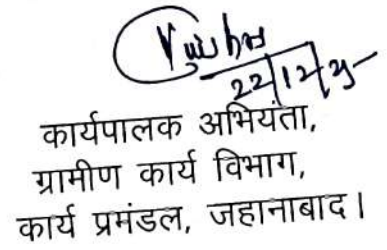 22/12/25
कार्यपालक अभियंता,
ग्रामीण कार्य विभाग,
कार्य प्रमंडल, जहानाबाद।